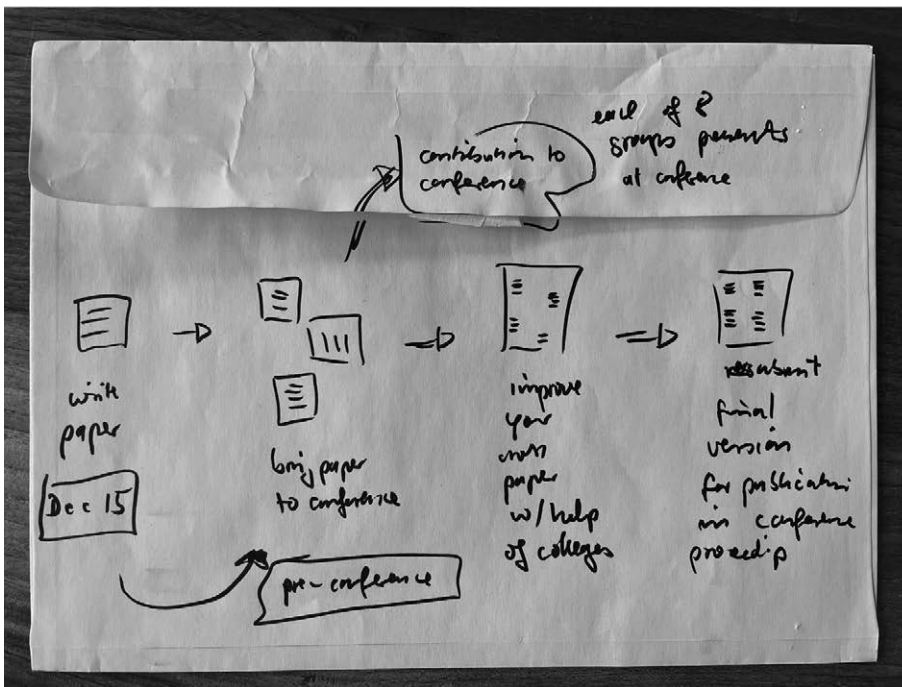 contribution to
conference
each of 8
groups presents
at conference
write
paper
Dec 15
bring paper
to conference
pre-conference
improve
your
own
paper
w/help
of colleges
resubmit
final
version
for publication
in conference
proceedings